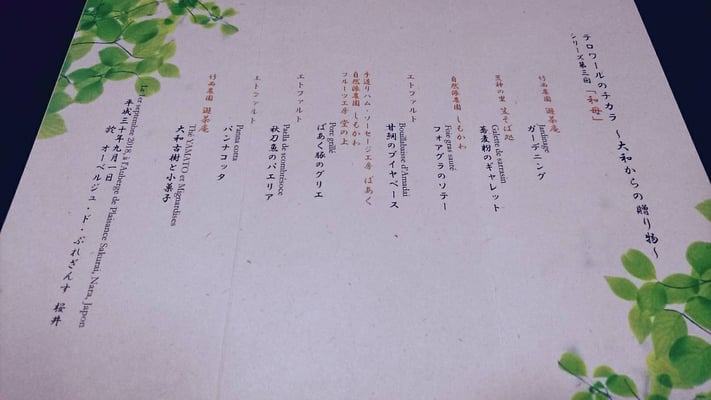 テロワールのチカラ ～大和からの贈り物～
シリーズ第三回「和母」
竹西農園 遊茶庵
Jardinage
ガーデニング
荒神の里 笠そば処
Galette de sarrasin
蕎麦粉のギャレット
自然派農園 しもかわ
Foie gras sauté
フォアグラのソテー
エトファルト
Bouillabaisse d'Amadai
甘鯛のブイヤベース
手造りハム・ソーセージ工房 ばあく
自然派農園 しもかわ
フルーツ工房 堂の上
Porc grillé
ばあく豚のグリエ
エトファルト
Paella de scombrésoce
秋刀魚のパエリア
エトファルト
Panna cotta
パンナコッタ
竹西農園 遊茶庵
Thé YAMATO et Mignardises
大和古樹と小菓子
Le 1er septembre 2018 à l'Auberge de Plaisance Sakurai, Nara, Japon
平成三十年九月一日
於 オーベルジュ・ド・ぷれざんす 桜井